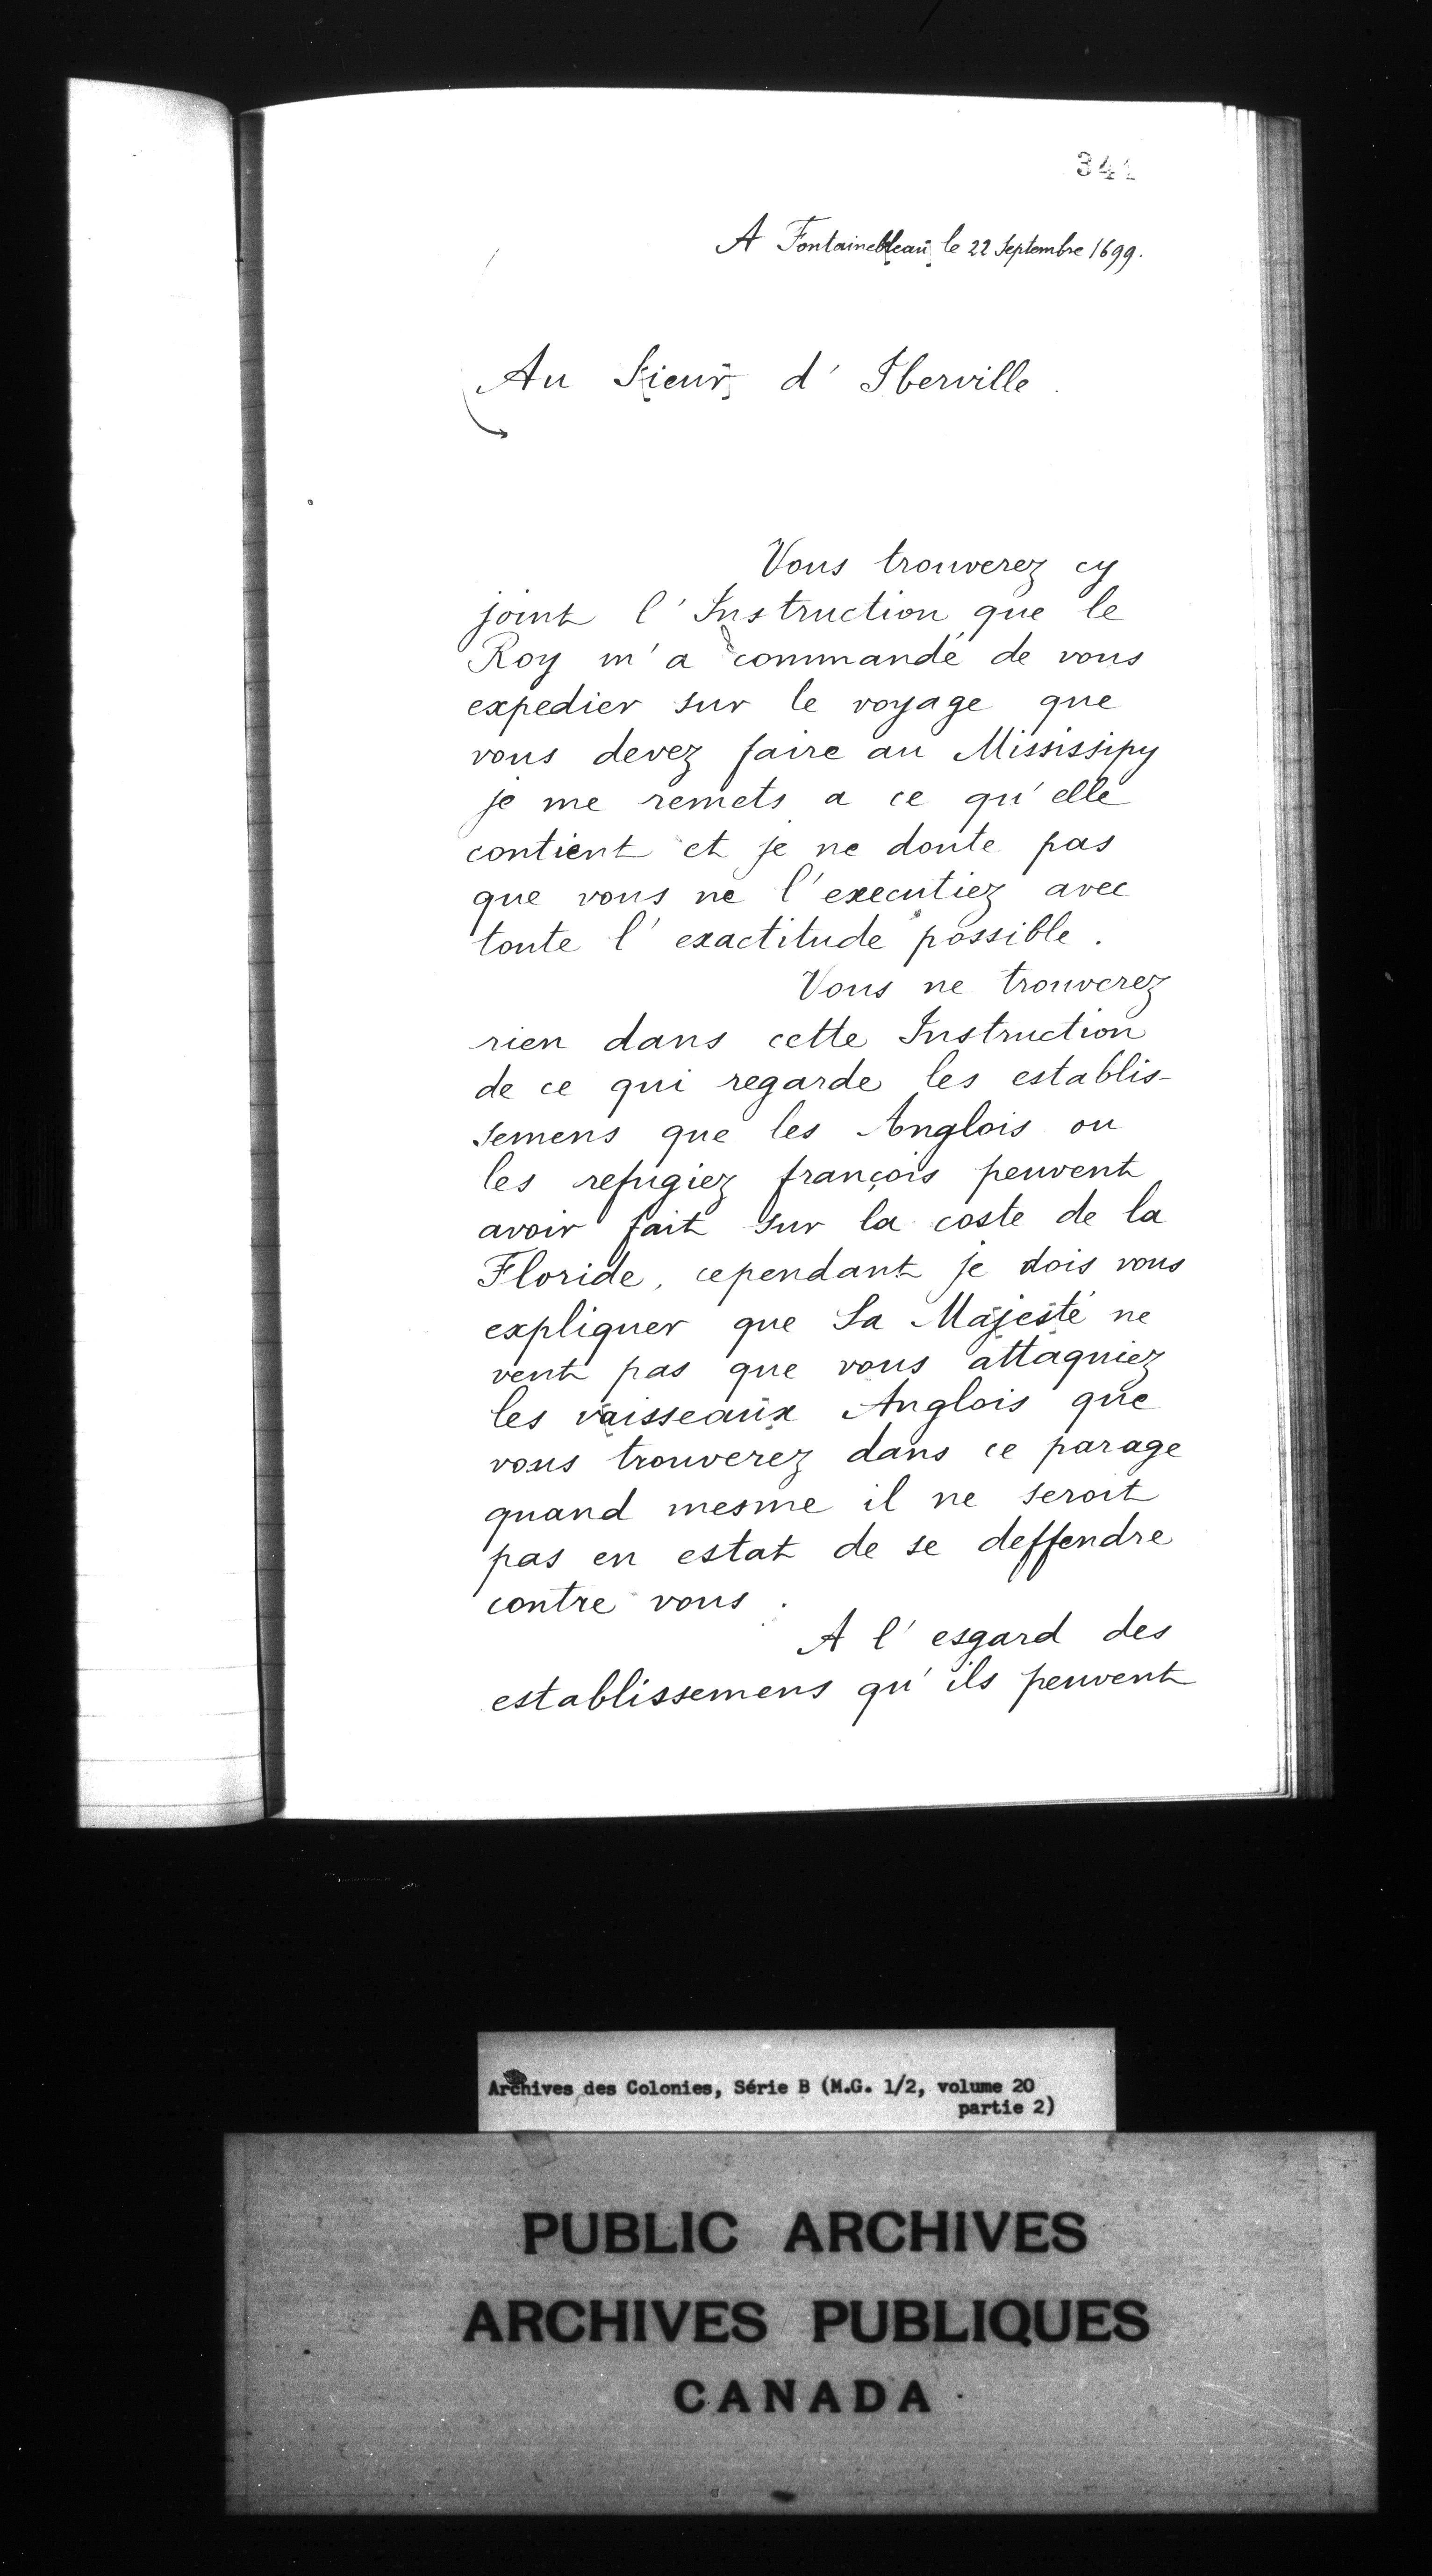 341
A Fontainebleau le 22 Septembre 1699.
Au Sieur d' Iberville.
Vous trouverez cy
joint l'Instruction que le
Roy m'a commandé de vous
expedier sur le voyage que
vous devez faire au Mississipy
je me remets a ce qu'elle
contient et je ne doute pas
que vous ne l'executiez avec
toute l'exactitude possible.
Vous ne trouverez
rien dans cette Instruction
de ce qui regarde les establis-
semens que les Anglois ou
les refugiez françois peuvent
avoir fait sur la coste de la
Floride, cependant je dois vous
expliquer que Sa Majesté ne
veut pas que vous attaquiez
les vaisseaux Anglois que
vous trouverez dans ce parage
quand mesme il ne seroit
pas en estat de se deffendre
contre vous.
A l'esgard des
establissemens qu'ils peuvent
Archives des Colonies, Série B (M.G. 1/2, volume 20
partie 2)
PUBLIC ARCHIVES
ARCHIVES PUBLIQUES
CANADA